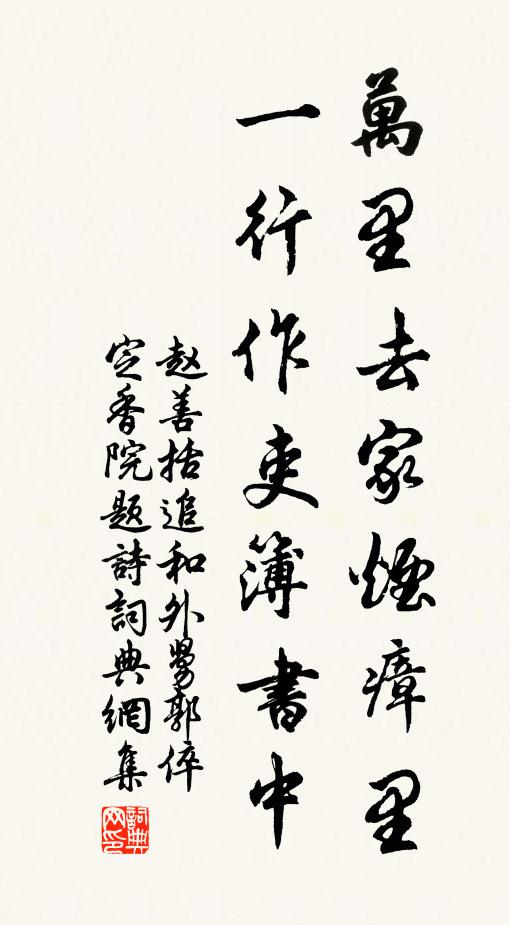 萬里去家煙瘴里
一行作吏簿書中
赵善括追和外舅郭倅
定香院题詩詞典網集
詞典
网印